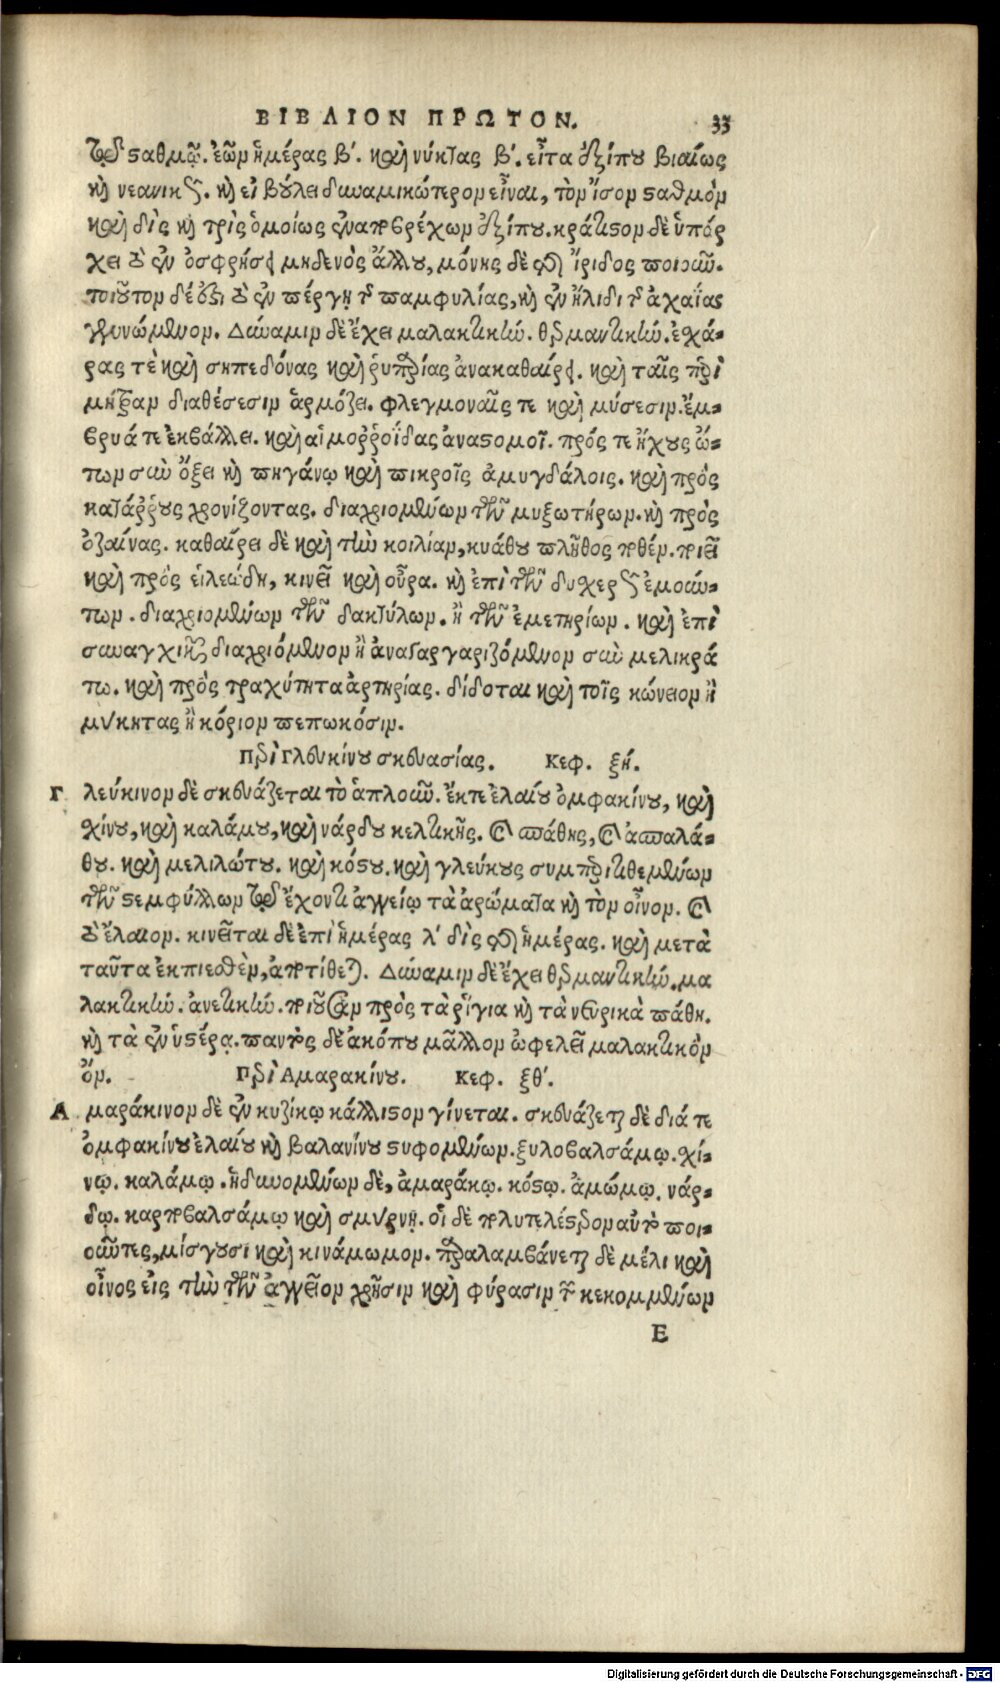 ΒΙΒΛΙΟΝ ΠΡΩΤΟΝ. 33
τῷ σταθμῷ. ἐῶν ἡμέρας β΄. καὶ νύκτας β΄. εἶτα ἔκθλιβε βιαίως
καὶ νεανικῶς. καὶ εἰ βούλει δυναμικώτερον εἶναι, τὸν ἴσον σταθμὸν
καὶ δὶς καὶ τρὶς ὁμοίως ἐναποβρέχων ἔκθλιβε. κράτιστον δὲ ὑπάρ
χει τὸ ἐν ὀσφρήσει μηδενὸς ἄλλου, μόνης δὲ τῆς ἴριδος ποιοῦν.
τοιοῦτον δέ ἐστι τὸ ἐν πέργῃ τῆς παμφυλίας, καὶ ἐν ἤλιδι τῆς ἀχαΐας
γεννώμενον. Δύναμιν δὲ ἔχει μαλακτικήν. θερμαντικήν. ἐχά-
ρας τὲ καὶ σηπεδόνας καὶ ῥυπαρίας ἀνακαθαίρει. καὶ ταῖς περὶ
μήτραν διαθέσεσιν ἁρμόζει. φλεγμοναῖς τε καὶ μύσεσιν. ἔμ-
βρυά τε ἐκβάλλει. καὶ αἱμοῤῥοΐδας ἀναστομοῖ. πρός τε ἤχους ὤ-
των σὺν ὄξει καὶ πηγάνῳ καὶ πικροῖς ἀμυγδάλοις. καὶ πρὸς
κατάῤῥους χρονίζοντας. διαχριομένων τῶν μυξωτήρων. καὶ πρὸς
ὀζαίνας. καθαίρει δὲ καὶ τὴν κοιλίαν, κυάθου πλῆθος ποθέν. ποιεῖ
καὶ πρὸς εἰλεώδη, κινεῖ καὶ οὖρα. καὶ ἐπὶ τῶν δυχερῶς ἐμούν-
των. διαχριομένων τῶν δακτύλων. ἢ τῶν ἐμετηρίων. καὶ ἐπὶ
συναγχικῶν διαχριόμενον ἢ ἀναγαργαριζόμενον σὺν μελικρά
τῳ. καὶ πρὸς τραχύτητα ἀρτηρίας. δίδοται καὶ τοῖς κώνειον ἢ
μύκητας ἢ κόριον πεπωκόσιν.
Περὶ Γλευκίνου σκευασίας. Κεφ. ξή.
Γ λεύκινον δὲ σκευάζεται τὸ ἁπλοῦν. ἔκ τε ἐλαίου ὀμφακίνου, καὶ
χίνου, καὶ καλάμου, καὶ νάρδου κελτικῆς. καὶ σπάθης, καὶ ἀσπαλά-
θου. καὶ μελιλώτου. καὶ κόστου. καὶ γλεύκους συμπεριτιθεμένων
τῶν στεμφύλλων τῷ ἔχοντι ἀγγείῳ τὰ ἀρώματα καὶ τὸν οἶνον. καὶ
τὸ ἔλαιον. κινεῖται δὲ ἐπὶ ἡμέρας λ΄ δὶς τῆς ἡμέρας. καὶ μετὰ
ταῦτα ἐκπιεσθὲν, ἀποτίθεται. Δύναμιν δὲ ἔχει θερμαντικήν. μα
λακτικήν. ἀνετικήν. ποιοῦσαν πρὸς τὰ ῥίγια καὶ τὰ νευρικὰ πάθη.
καὶ τὰ ἐν ὑστέρᾳ. παντὸς δὲ ἀκόπου μᾶλλον ὠφελεῖ μαλακτικὸν
ὄν. Περὶ Αμαρακίνου. Κεφ. ξθ΄.
Α μαράκινον δὲ ἐν κυζίκῳ κάλλιστον γίνεται. σκευάζεται δὲ διά τε
ὀμφακίνου ἐλαίου καὶ βαλανίνου στυφομένων. ξυλοβαλσάμῳ. χί-
νῳ. καλάμῳ. ἡδυνομένων δὲ, ἀμαράκῳ. κόστῳ. ἀμώμῳ. νάρ-
δῳ. καρποβαλσάμῳ καὶ σμύρνῃ. οἱ δὲ πολυτελέστερον αὐτὸ ποι-
οῦντες, μίσγουσι καὶ κινάμωμον. παραλαμβάνεται δὲ μέλι καὶ
οἶνος εἰς τὴν τῶν ἀγγεῖον χρῆσιν καὶ φύρασιν τῶν κεκομμένων
E
Digitalisierung gefördert durch die Deutsche Forschungsgemeinschaft - DFG